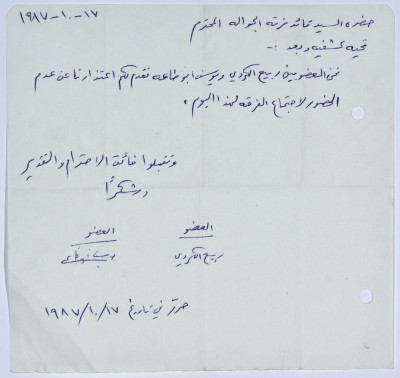 ١٩٨٧-١٠-١٧
حضرة السيد قائد فرقة الجوالة المحترم
تحية كشفية وبعد :-
نحن العضوين ربيع الكردي ويوسف ابو طاعه نقدم لكم اعتذارنا عن عدم
الحضور لاجتماع الفرقة لهذا اليوم .
وتقبلوا فائق الاحترام والتقدير
وشكرًا
العضو
العضو
ربيع الكردي
حرر في تاريخ ١٩٨٧/١٠/١٧